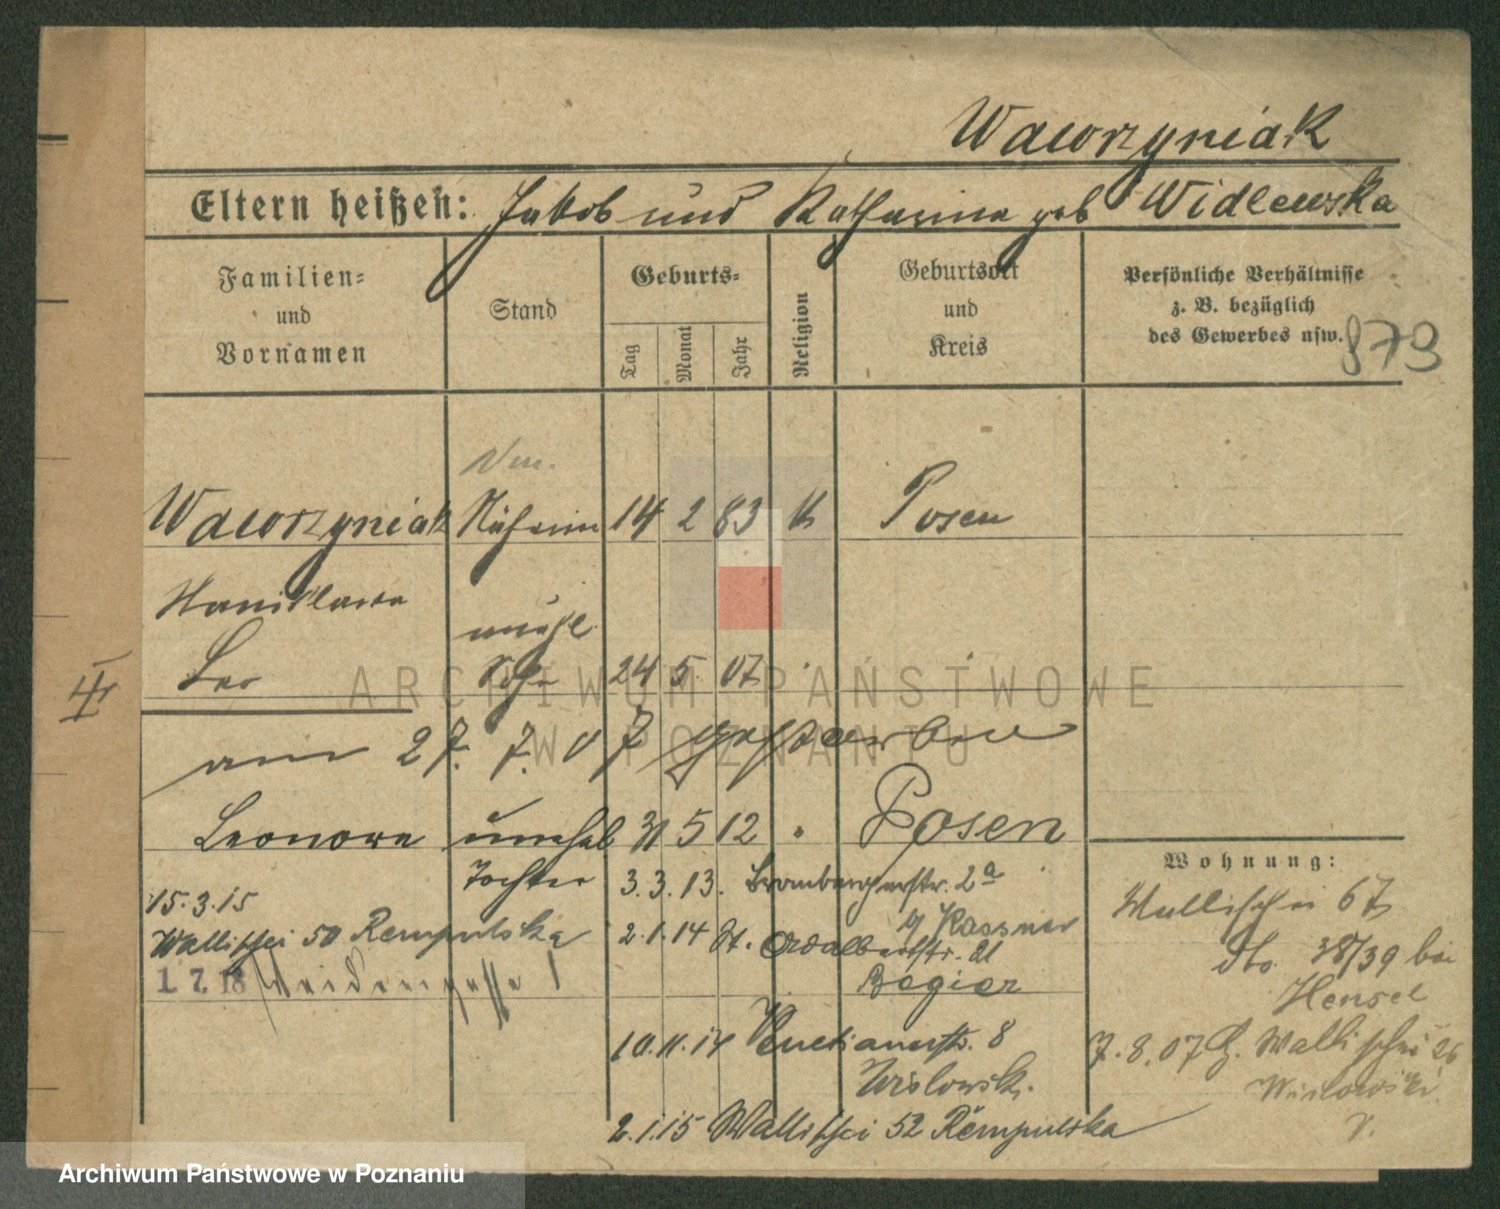 Wawrzyniak
Eltern heißen: Jakob und Katharina geb Widlewska
Familien- und Vornamen
Stand
Geburts-
Tag
Monat
Jahr
Religion
Geburtsort und Kreis
Persönliche Verhältnisse
z. B. bezüglich
des Gewerbes usw.
873
Wawrzyniak Näherin 14 2 83 k Posen
Stanislawa
unehl.
Leo Sohn 24 5. 07
II
am 27. 7. 07 gestorben
Leonora unehel 31 5 12 " Posen
Tochter 3. 3. 13. Brombergerstr. 2a
Kassner
15. 3. 15
Wallischei 50 Rempulska 2. 1. 14 St. Adalbertstr. 21
Begier
1. 7. 18 Weidengasse 1
10. 11. 14 Venetianerstr. 8
Wislowsk.
2. 1. 15 Wallischei 52 Rempulska
Wohnung:
Wallischei 67
dto. 38/39 bei
Hensel
7. 8. 07 Wallischei 26
Wislowski
ARCHIWUM PAŃSTWOWE
W POZNANIU
Archiwum Państwowe w Poznaniu